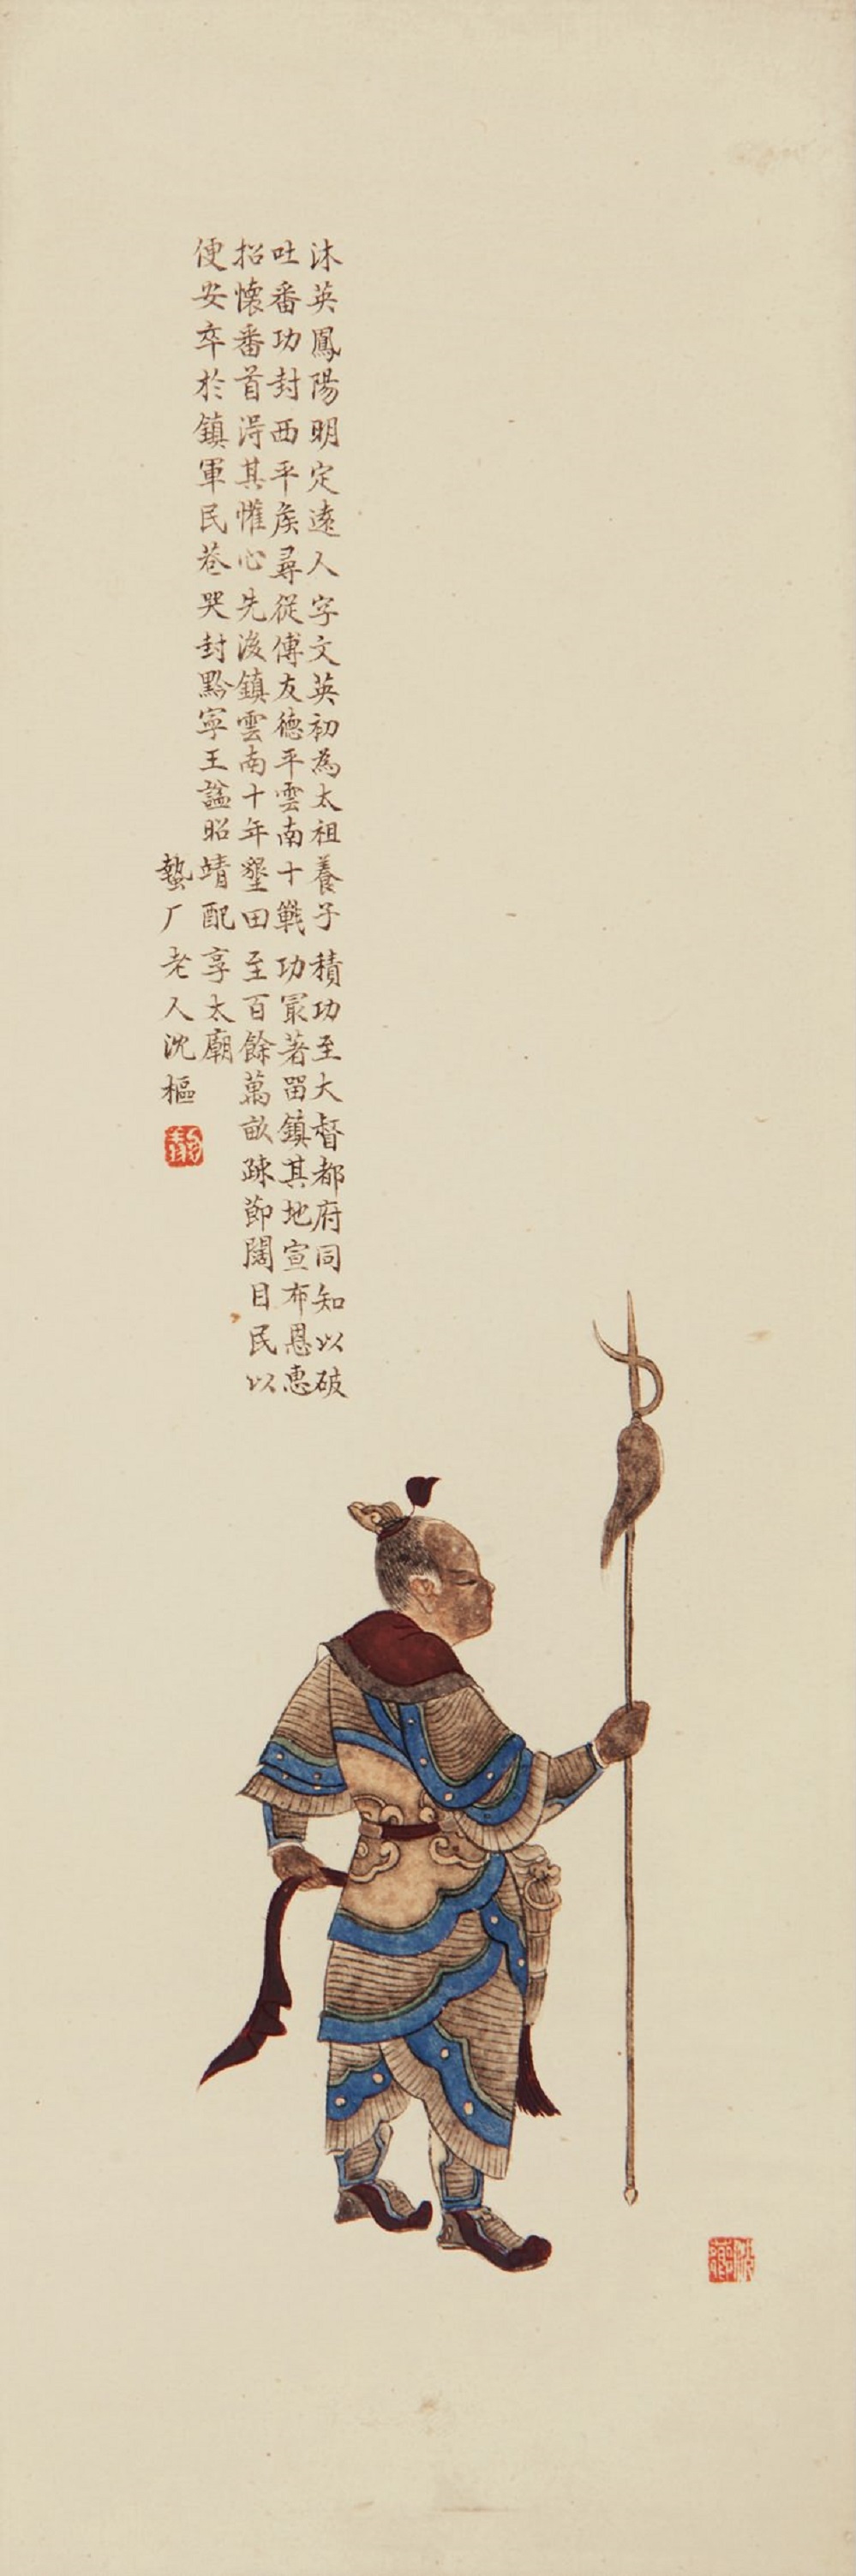 沐英鳳陽明定遠人字文英初為太祖養子積功至大督都府同知以破
吐番功封西平矦尋從傅友德平雲南十戰功冣著畱鎮其地宣布恩惠
招懷番首淂其懽心先後鎮雲南十年墾田至百餘萬畝疎節闊目民以
便安卒於鎮軍民巷哭封黔寧王諡昭靖配享太廟
蟄厂老人沈樞